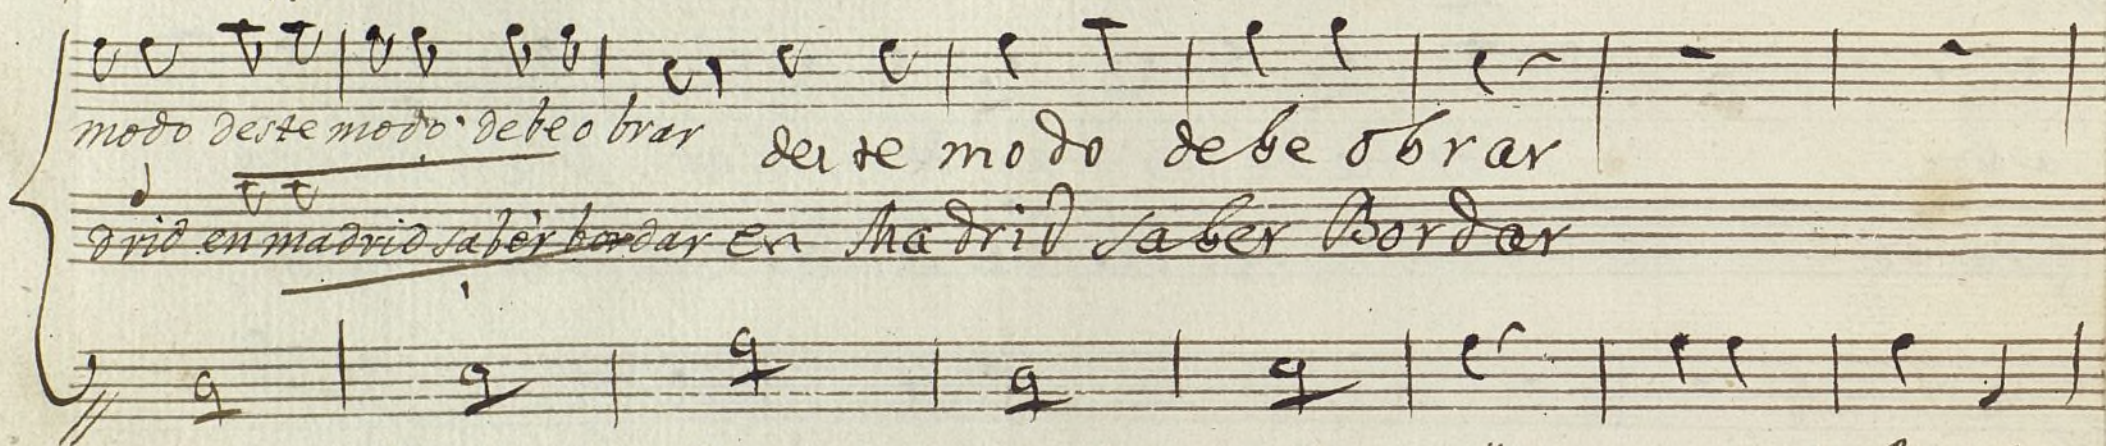 modo deste modo debe obrar deste modo debe obrar
drid en madrid saber bordar en Madrid saber Bordar